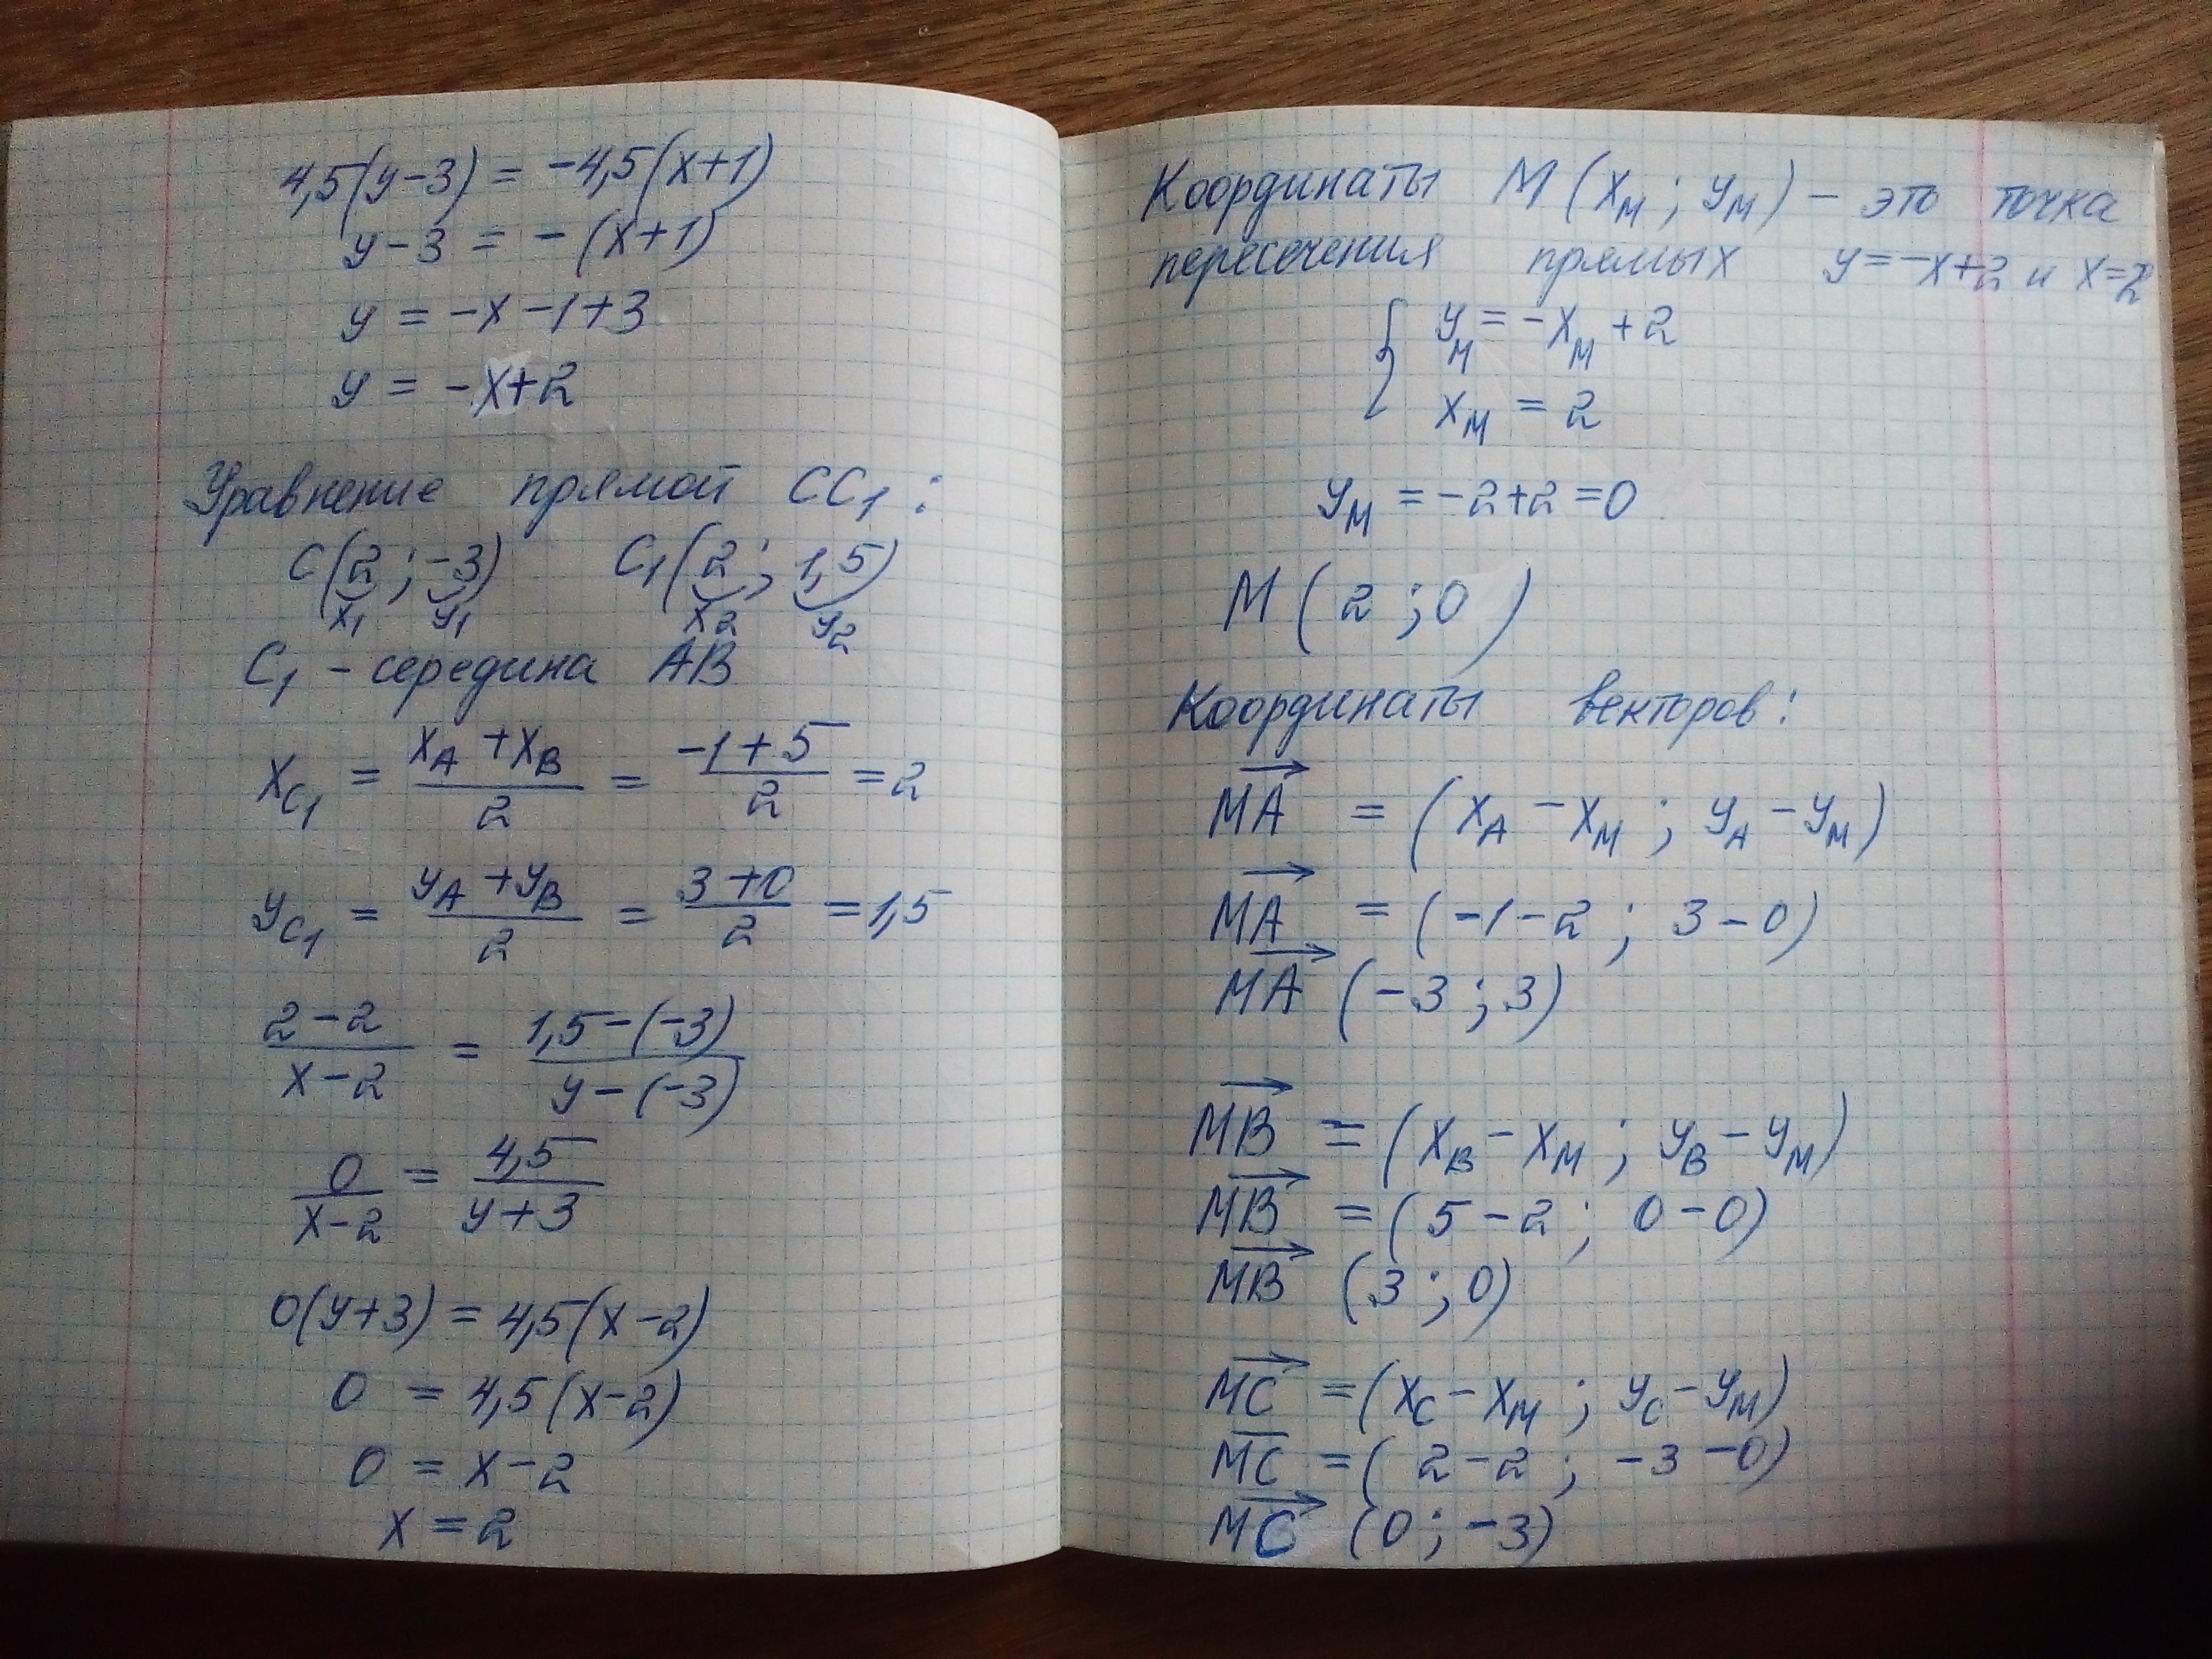 4,5(y-3) = -4,5(x+1)
y-3 = -(x+1)
y = -x-1+3
y = -x+2
Уравнение прямой CC₁:
C(2; -3) C₁(2; 1,5)
x₁ y₁ x₂ y₂
C₁ - середина AB
x_C₁ = (x_A + x_B)/2 = (-1+5)/2 = 2
y_C₁ = (y_A + y_B)/2 = (3+0)/2 = 1,5
(2-2)/(x-2) = (1,5-(-3))/(y-(-3))
0/(x-2) = 4,5/(y+3)
0(y+3) = 4,5(x-2)
0 = 4,5(x-2)
0 = x-2
x = 2
Координаты M(x_M; y_M) - это точка
пересечения прямых y=-x+2 и x=2
{ y_M = -x_M + 2
x_M = 2
y_M = -2+2 = 0
M(2; 0)
Координаты векторов:
MA⃗ = (x_A - x_M; y_A - y_M)
MA⃗ = (-1-2; 3-0)
MA⃗ (-3; 3)
MB⃗ = (x_B - x_M; y_B - y_M)
MB⃗ = (5-2; 0-0)
MB⃗ (3; 0)
MC⃗ = (x_C - x_M; y_C - y_M)
MC̅ = (2-2; -3-0)
MC⃗ (0; -3)